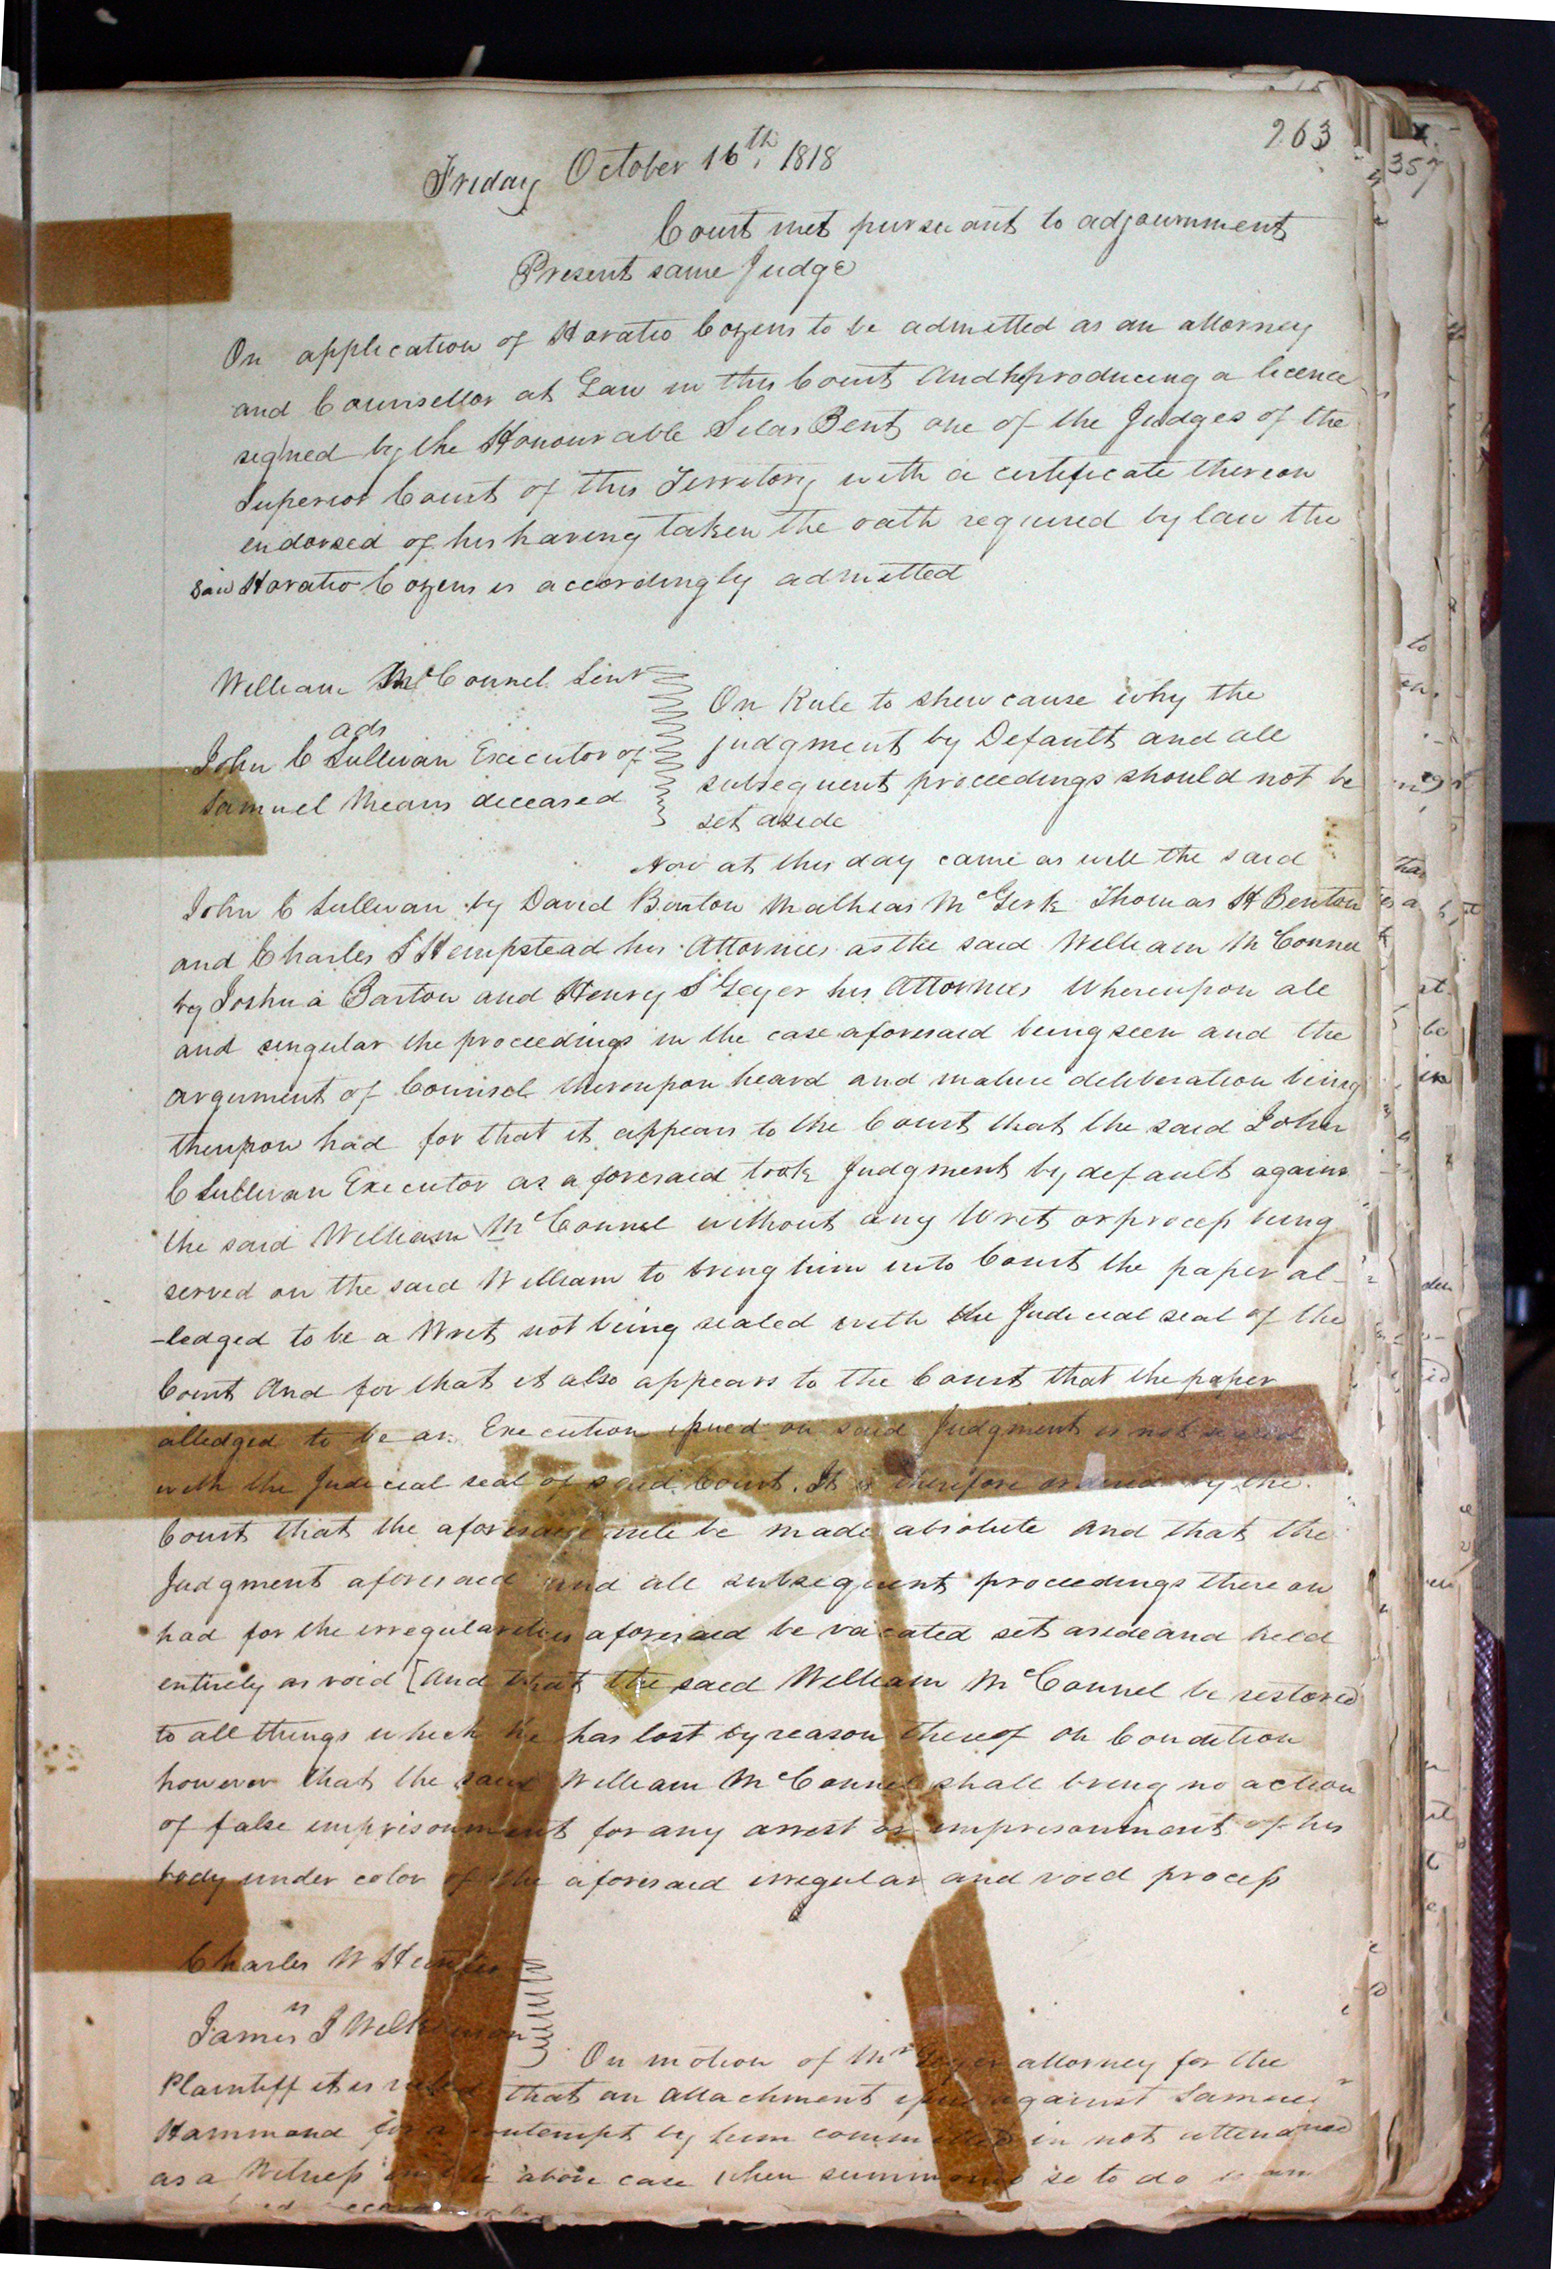 263
Friday October 16th, 1818
Court met pursuant to adjournment
Present same Judge
On application of Horatio Cozens to be admitted as an attorney
and Counsellor at Law in this Court And he producing a licence
signed by the Honourable Silas Bent one of the Judges of the
Superior Court of this Territory with a certificate thereon
endorsed of his having taken the oath required by law the
said Horatio Cozens is accordingly admitted
William McConnel Senr
ads
John C Sullivan Executor of
Samuel Means deceased
On Rule to shew cause why the
judgment by Default and all
subsequent proceedings should not be
set aside
Now at this day came as well the said
John C Sullivan by David Barton Mathias McGirk Thomas H Benton
and Charles S Hempstead his Attornies as the said William McConnel
by Joshua Barton and Henry S Geyer his Attornies Whereupon all
and singular the proceedings in the case aforesaid being seen and the
argument of Counsel thereupon heard and mature deliberation being
thereupon had for that it appears to the Court that the said John
C Sullivan Executor as aforesaid took Judgment by default against
the said William McConnel without any Writ or process being
served on the said William to bring him into Court the paper al-
-ledged to be a Writ not being sealed with the Judicial seal of the
Court And for that it also appears to the Court that the paper
alledged to be an Execution issued on said Judgment is not sealed
with the Judicial seal of said Court. It is therefore ordered by the
Court that the aforesaid rule be made absolute And that the
Judgment aforesaid and all subsequent proceedings thereon
had for the irregularities aforesaid be vacated set aside and held
entirely as void [And that the said William McConnel be restored
to all things which he has lost by reason thereof on Condition
however that the said William McConnel shall bring no action
of false imprisonment for any arrest or imprisonment of his
body under color of the aforesaid irregular and void process
Charles W Hunter
vs
James J Wilkinson
On motion of Mr Geyer attorney for the
Plaintiff it is ruled that an attachment issue against Samuel
Hammond for a contempt by him committed in not attending
as a Witness in the above case when summoned so to do
357